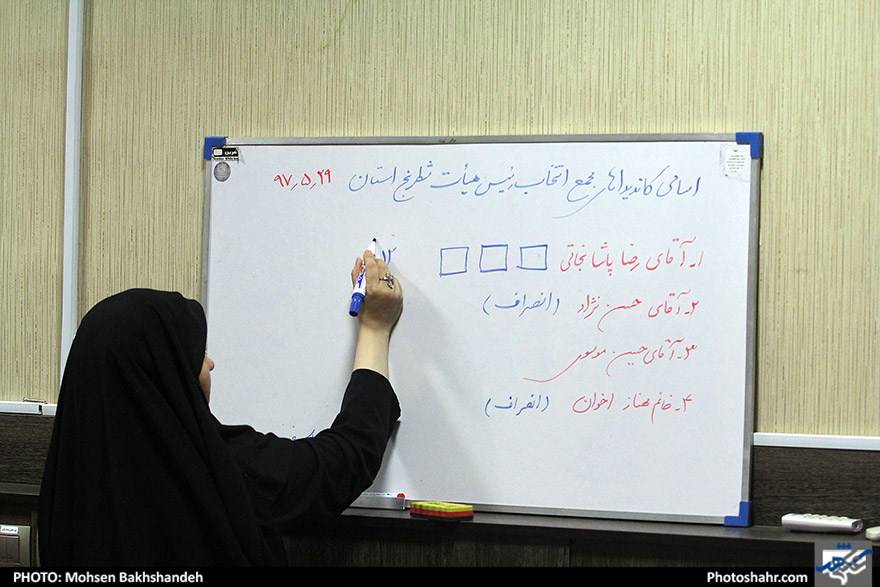 اسامی کاندیداهای مجمع انتخاب رئیس هیأت شطرنج استان ۹۷٫۵٫۲۹
۱ـ آقای رضا پاشا نجاتی ۱۲
۲ـ آقای حسن نژاد (انصراف)
۳ـ آقای حسین موسوی
۴ـ خانم مهناز اخوان (انصراف)
PHOTO: Mohsen Bakhshandeh
Photoshahr.com